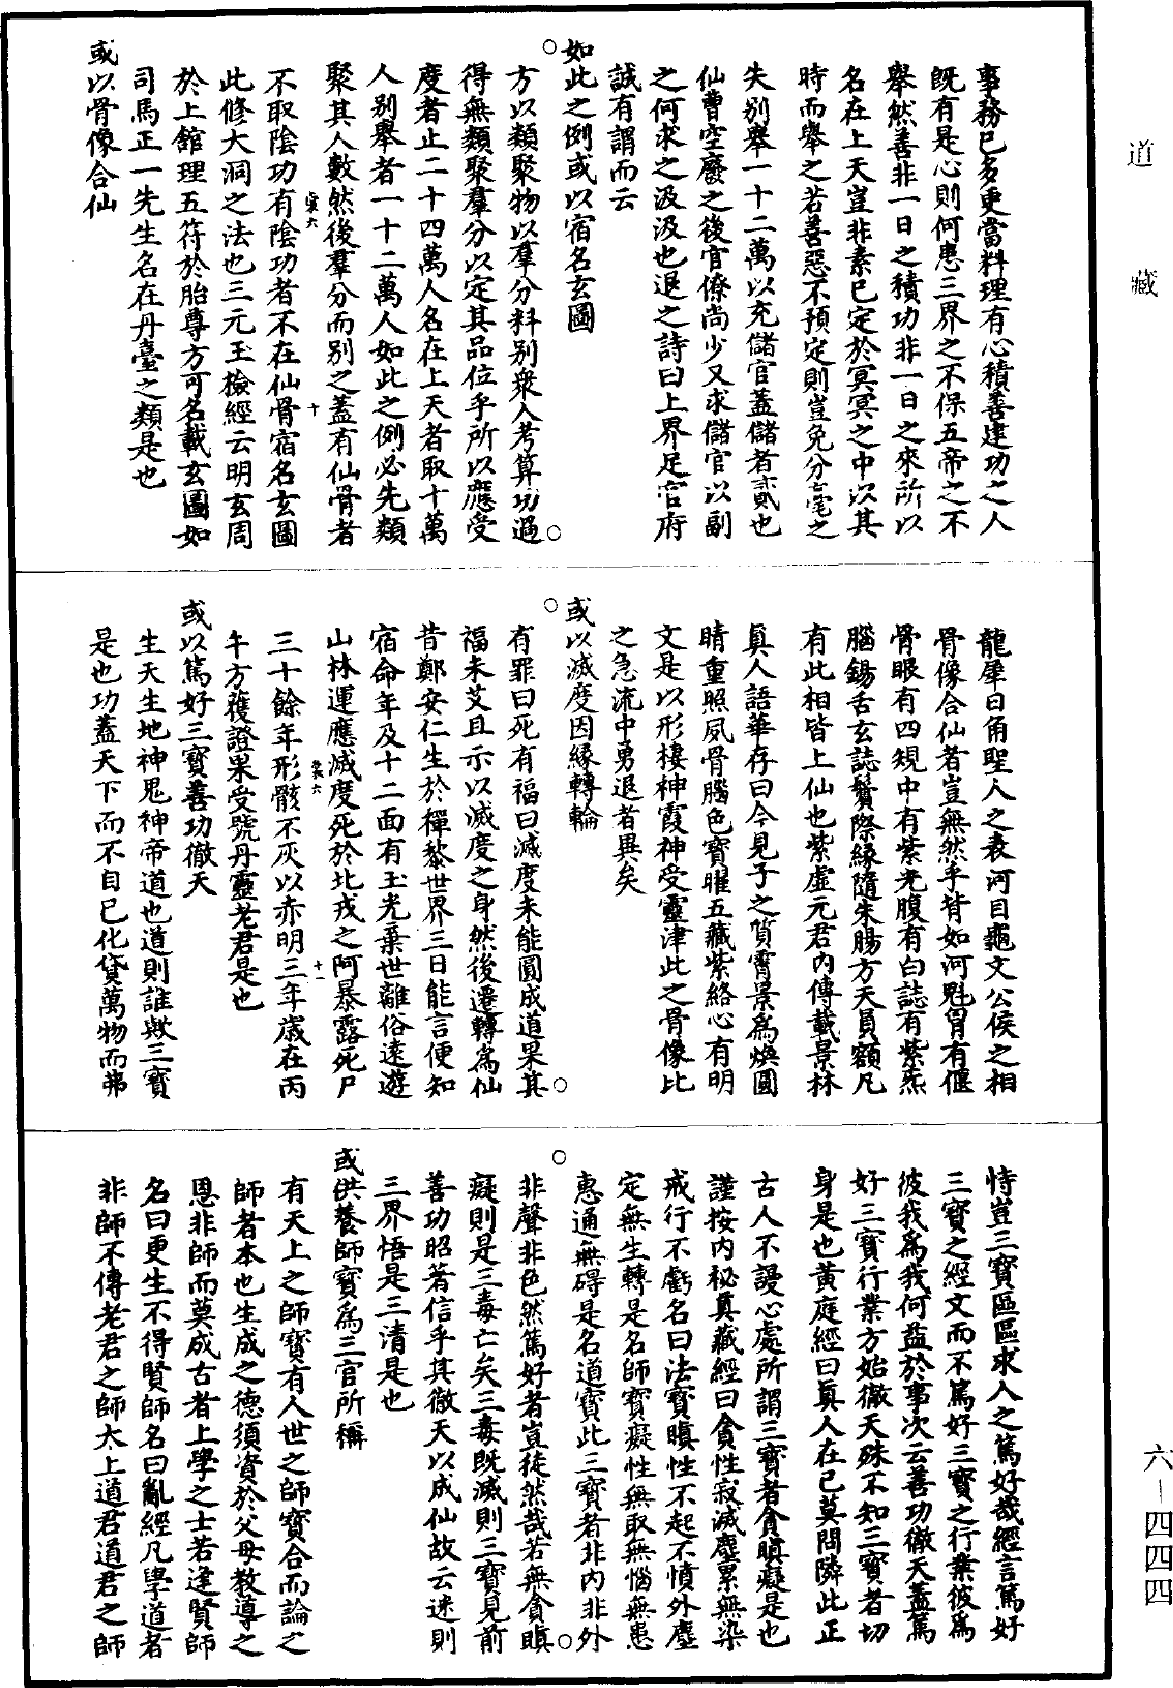 道藏
事務已多更當料理有心積善建功之人
旣有是心則何患三界之不保五帝之不
舉然善非一日之積功非一日之來所以
名在上天豈非素已定於冥冥之中以其
時而舉之若善惡不預定則豈免分毫之
失别舉一十二萬以充儲官蓋儲者貳也
仙曹空廢之後官僚尚少又求儲官以副
之何求之汲汲也退之詩曰上界足官府
誠有謂而云
如此之例或以宿名玄圖
○
方以類聚物以羣分料别衆人考算功過
○
得無類聚羣分以定其品位乎所以應受
度者止二十四萬人名在上天者取十萬
人别舉者一十二萬人如此之例必先類
聚其人數然後羣分而别之蓋有仙骨者
十
不取陰功有陰功者不在仙骨宿名玄圖
此修大洞之法也三元玉檢經云明玄周
於上館理五符於胎尊方可名載玄圖如
司馬正一先生名在丹臺之類是也
或以骨像合仙
龍犀日角聖人之表河目龜文公侯之相
骨像合仙者豈無然乎背如河魁胷有偃
骨眼有四規中有紫光腹有白誌有紫炁
腦錫舌玄誌鬢際緣隨朱腸方天員額凡
有此相皆上仙也紫虛元君内傳載景林
真人語華存曰今見子之質霄景爲煥圓
晴重照鳳骨腦色寶曜五藏紫絡心有明
文是以形棲神霞神受靈津此之骨像比
之急流中勇退者異矣
或以滅度因緣轉輪
○
有罪曰死有福曰滅度未能圓成道果其
○
福未艾且示以滅度之身然後遷轉爲仙
昔鄭安仁生於禪黎世界三日能言便知
宿命年及十二面有玉光棄世離俗遠遊
山林運應滅度死於北戎之阿暴露死尸
十一
三十餘年形骸不灰以赤明三年歲在丙
午方獲證果受號丹靈老君是也
或以篤好三寶善功徹天
生天生地神鬼神帝道也道則誰歟三寶
是也功蓋天下而不自已化貸萬物而弗
恃豈三寶區區求人之篤好哉經言篤好
三寶之經文而不篤好三寶之行業彼爲
彼我爲我何益於事次云善功徹天蓋篤
好三寶行業方始徹天殊不知三寶者切
身是也黄庭經曰真人在己莫問隣此正
古人不謾心處所謂三寶者貪瞋癡是也
謹按内祕真藏經曰貪性寂滅塵累無染
戒行不虧名曰法寶瞋性不起不憤外塵
定無生轉是名師寶癡性無取無惱無恚
惠通無碍是名道寶此三寶者非内非外
○
○
非聲非色然篤好者豈徒然哉若無貪瞋
癡則是三毒亡矣三毒既滅則三寶見前
善功昭著信乎其徹天以成仙故云迷則
三界悟是三清是也
或供養師寶爲三官所稱
有天上之師寶有人世之師寶合而論之
師者本也生成之德須資於父母教導之
恩非師而莫成古者上學之士若逢賢師
名曰更生不得賢師名曰亂經凡學道者
非師不傳老君之師太上道君道君之師
六—四四四